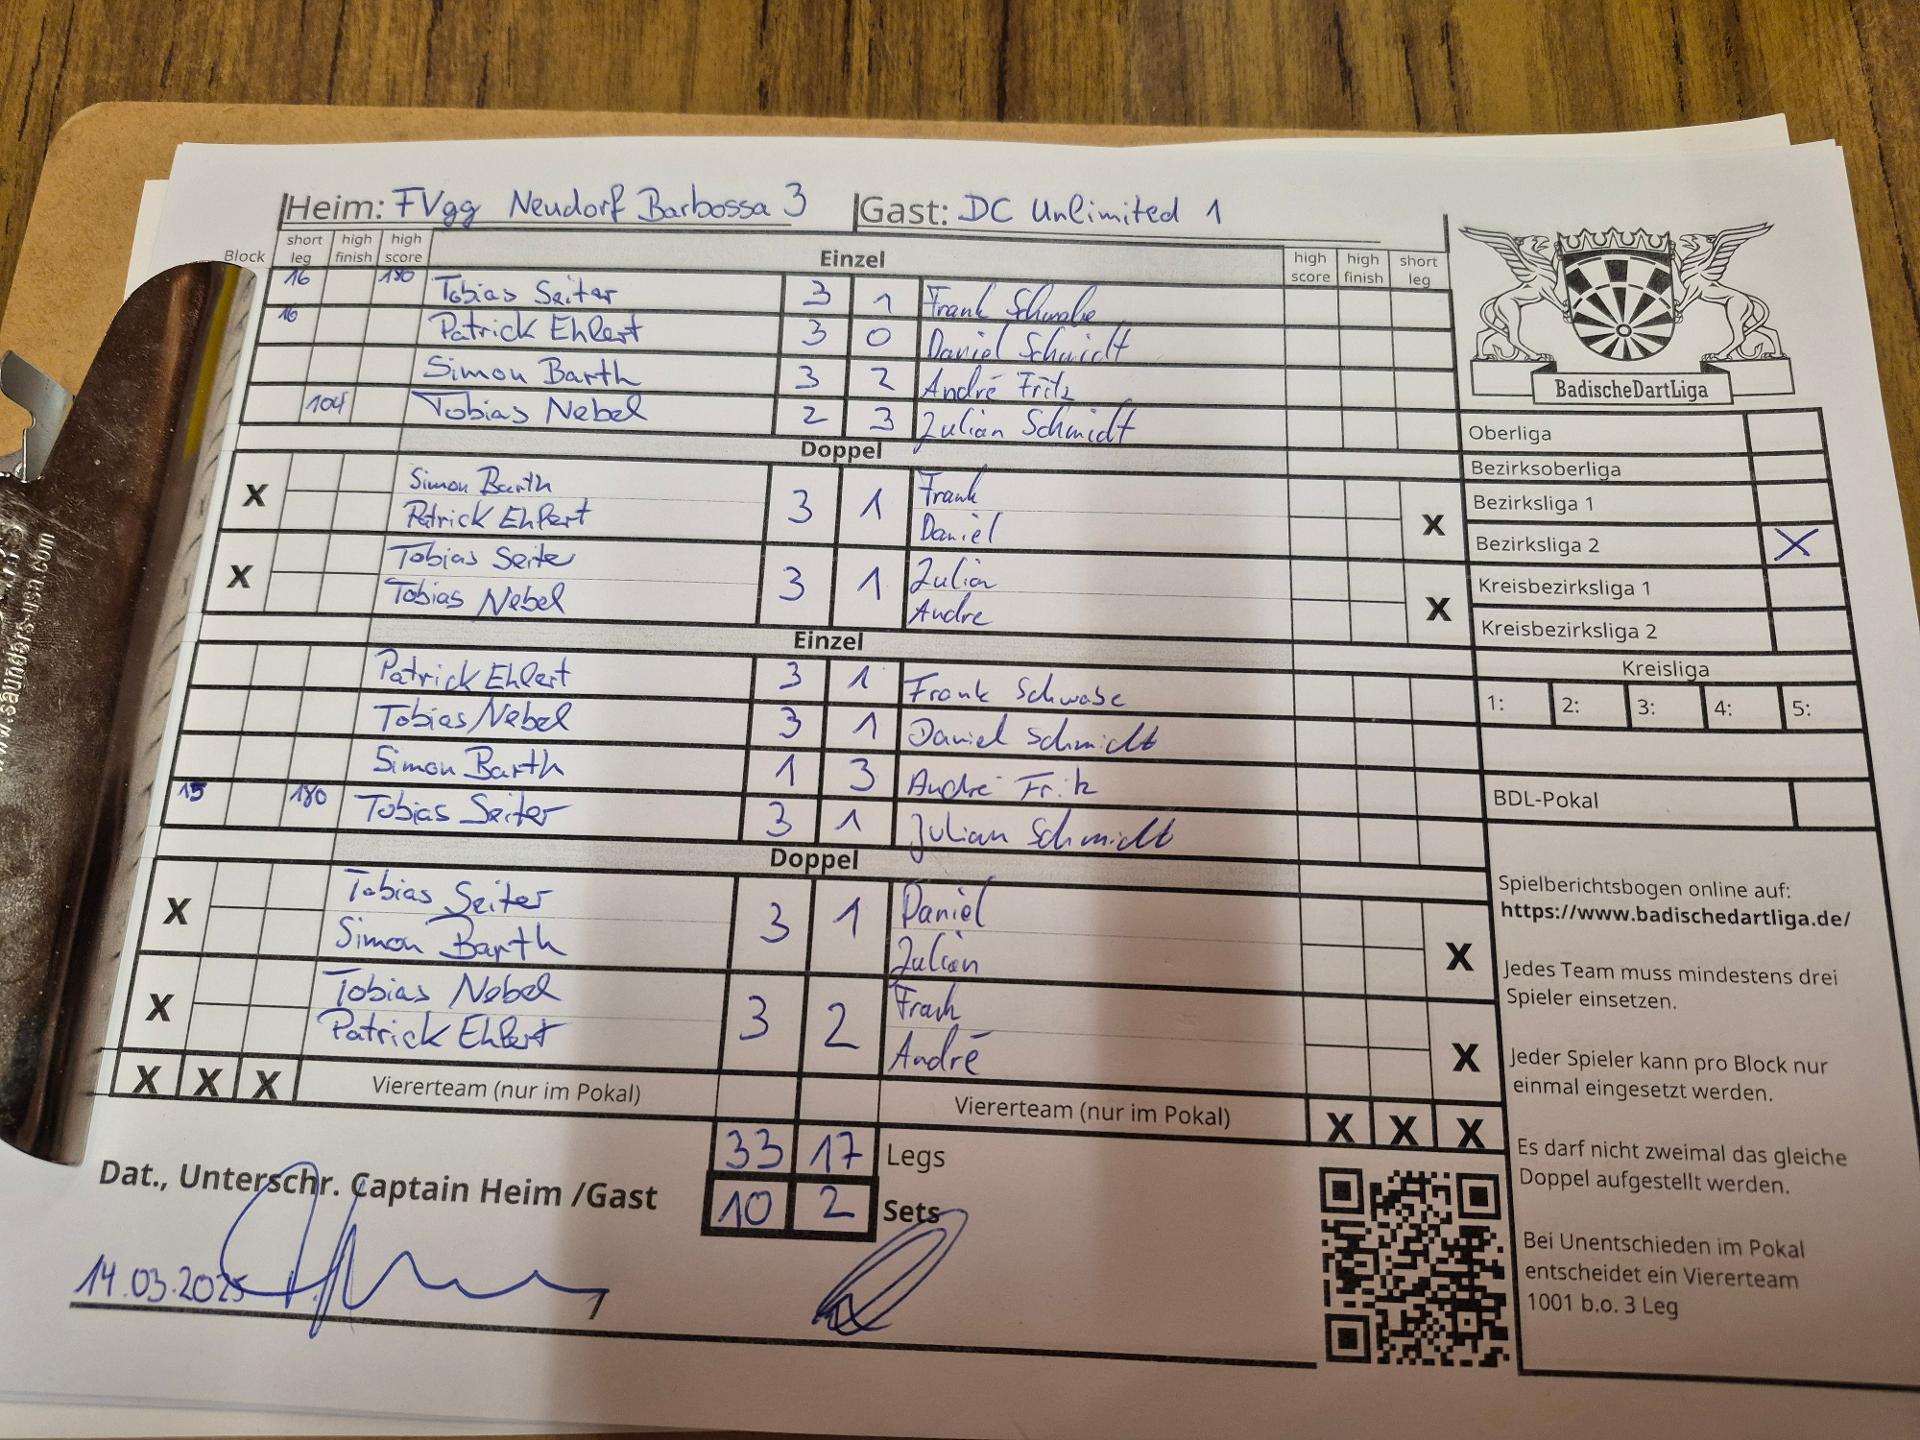 Heim: FVgg Neudorf Barbossa 3 Gast: DC Unlimited 1
Block short leg high finish high score Einzel high score high finish short leg
16 180 Tobias Seiter 3 1 Frank Schwabe
16 Patrick Ehlert 3 0 Daniel Schmidt
Simon Barth 3 2 André Fritz
104 Tobias Nebel 2 3 Julian Schmidt
Doppel
Simon Barth Frank
X 3 1 X
Patrick Ehlert Daniel
Tobias Seiter Julian
X 3 1 X
Tobias Nebel Andre
Einzel
Patrick Ehlert 3 1 Frank Schwabe
Tobias Nebel 3 1 Daniel Schmidt
Simon Barth 1 3 André Fritz
15 180 Tobias Seiter 3 1 Julian Schmidt
Doppel
Tobias Seiter Daniel
X 3 1 X
Simon Barth Julian
Tobias Nebel Frank
X 3 2 X
Patrick Ehlert André
X X X Viererteam (nur im Pokal) Viererteam (nur im Pokal) X X X
33 17 Legs
10 2 Sets
Dat., Unterschr. Captain Heim /Gast
14.03.2025
BadischeDartLiga
Oberliga
Bezirksoberliga
Bezirksliga 1
Bezirksliga 2 X
Kreisbezirksliga 1
Kreisbezirksliga 2
Kreisliga
1: 2: 3: 4: 5:
BDL-Pokal
Spielberichtsbogen online auf:
https://www.badischedartliga.de/
Jedes Team muss mindestens drei
Spieler einsetzen.
Jeder Spieler kann pro Block nur
einmal eingesetzt werden.
Es darf nicht zweimal das gleiche
Doppel aufgestellt werden.
Bei Unentschieden im Pokal
entscheidet ein Viererteam
1001 b.o. 3 Leg
www.saunders-usa.com